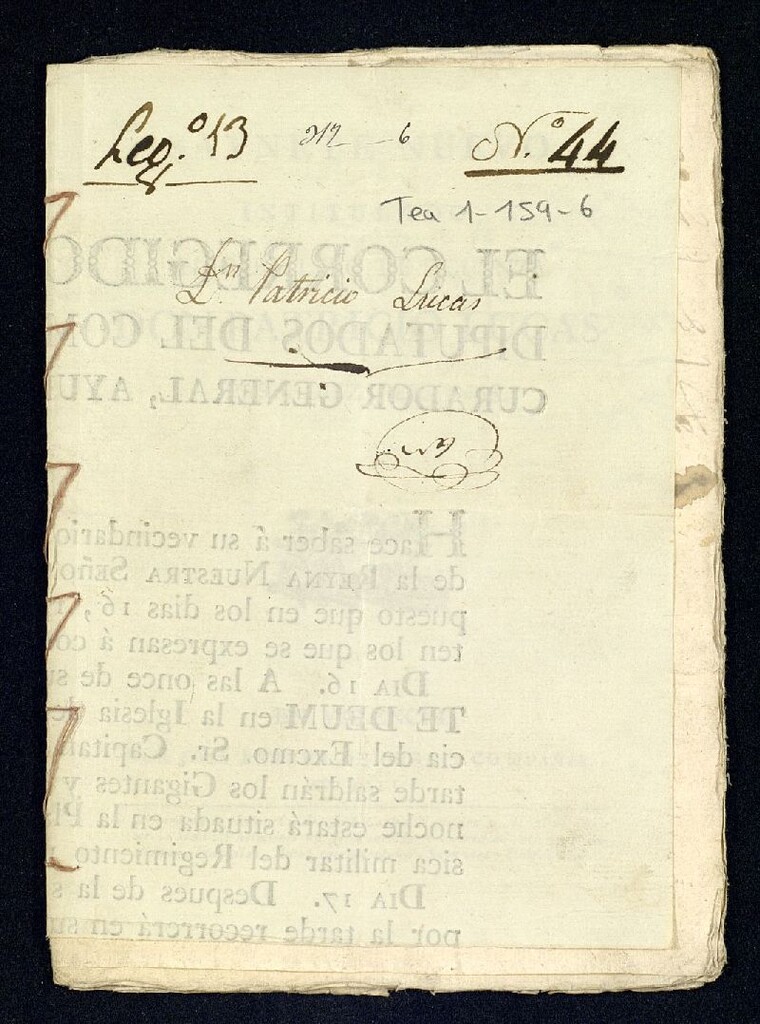 Leg.º 13 212-6 N.º 44
Tea 1-159-6
Dn. Patricio Lucas
EL CORREGIDO
DIPUTADOS DEL COM
CURADOR GENERAL, AYU
Hace saber á su vecindario
de la REYNA NUESTRA SEÑO
puesto que en los dias 16, 1
ten los que se expresan á co
DIA 16. A las once de su
TE DEUM en la Iglesia de
cia del Excmo. Sr. Capitan
tarde saldrán los Gigantes y
noche estará situada en la Pl
sica militar del Regimiento
DIA 17. Despues de la s
por la tarde recorrerá en su